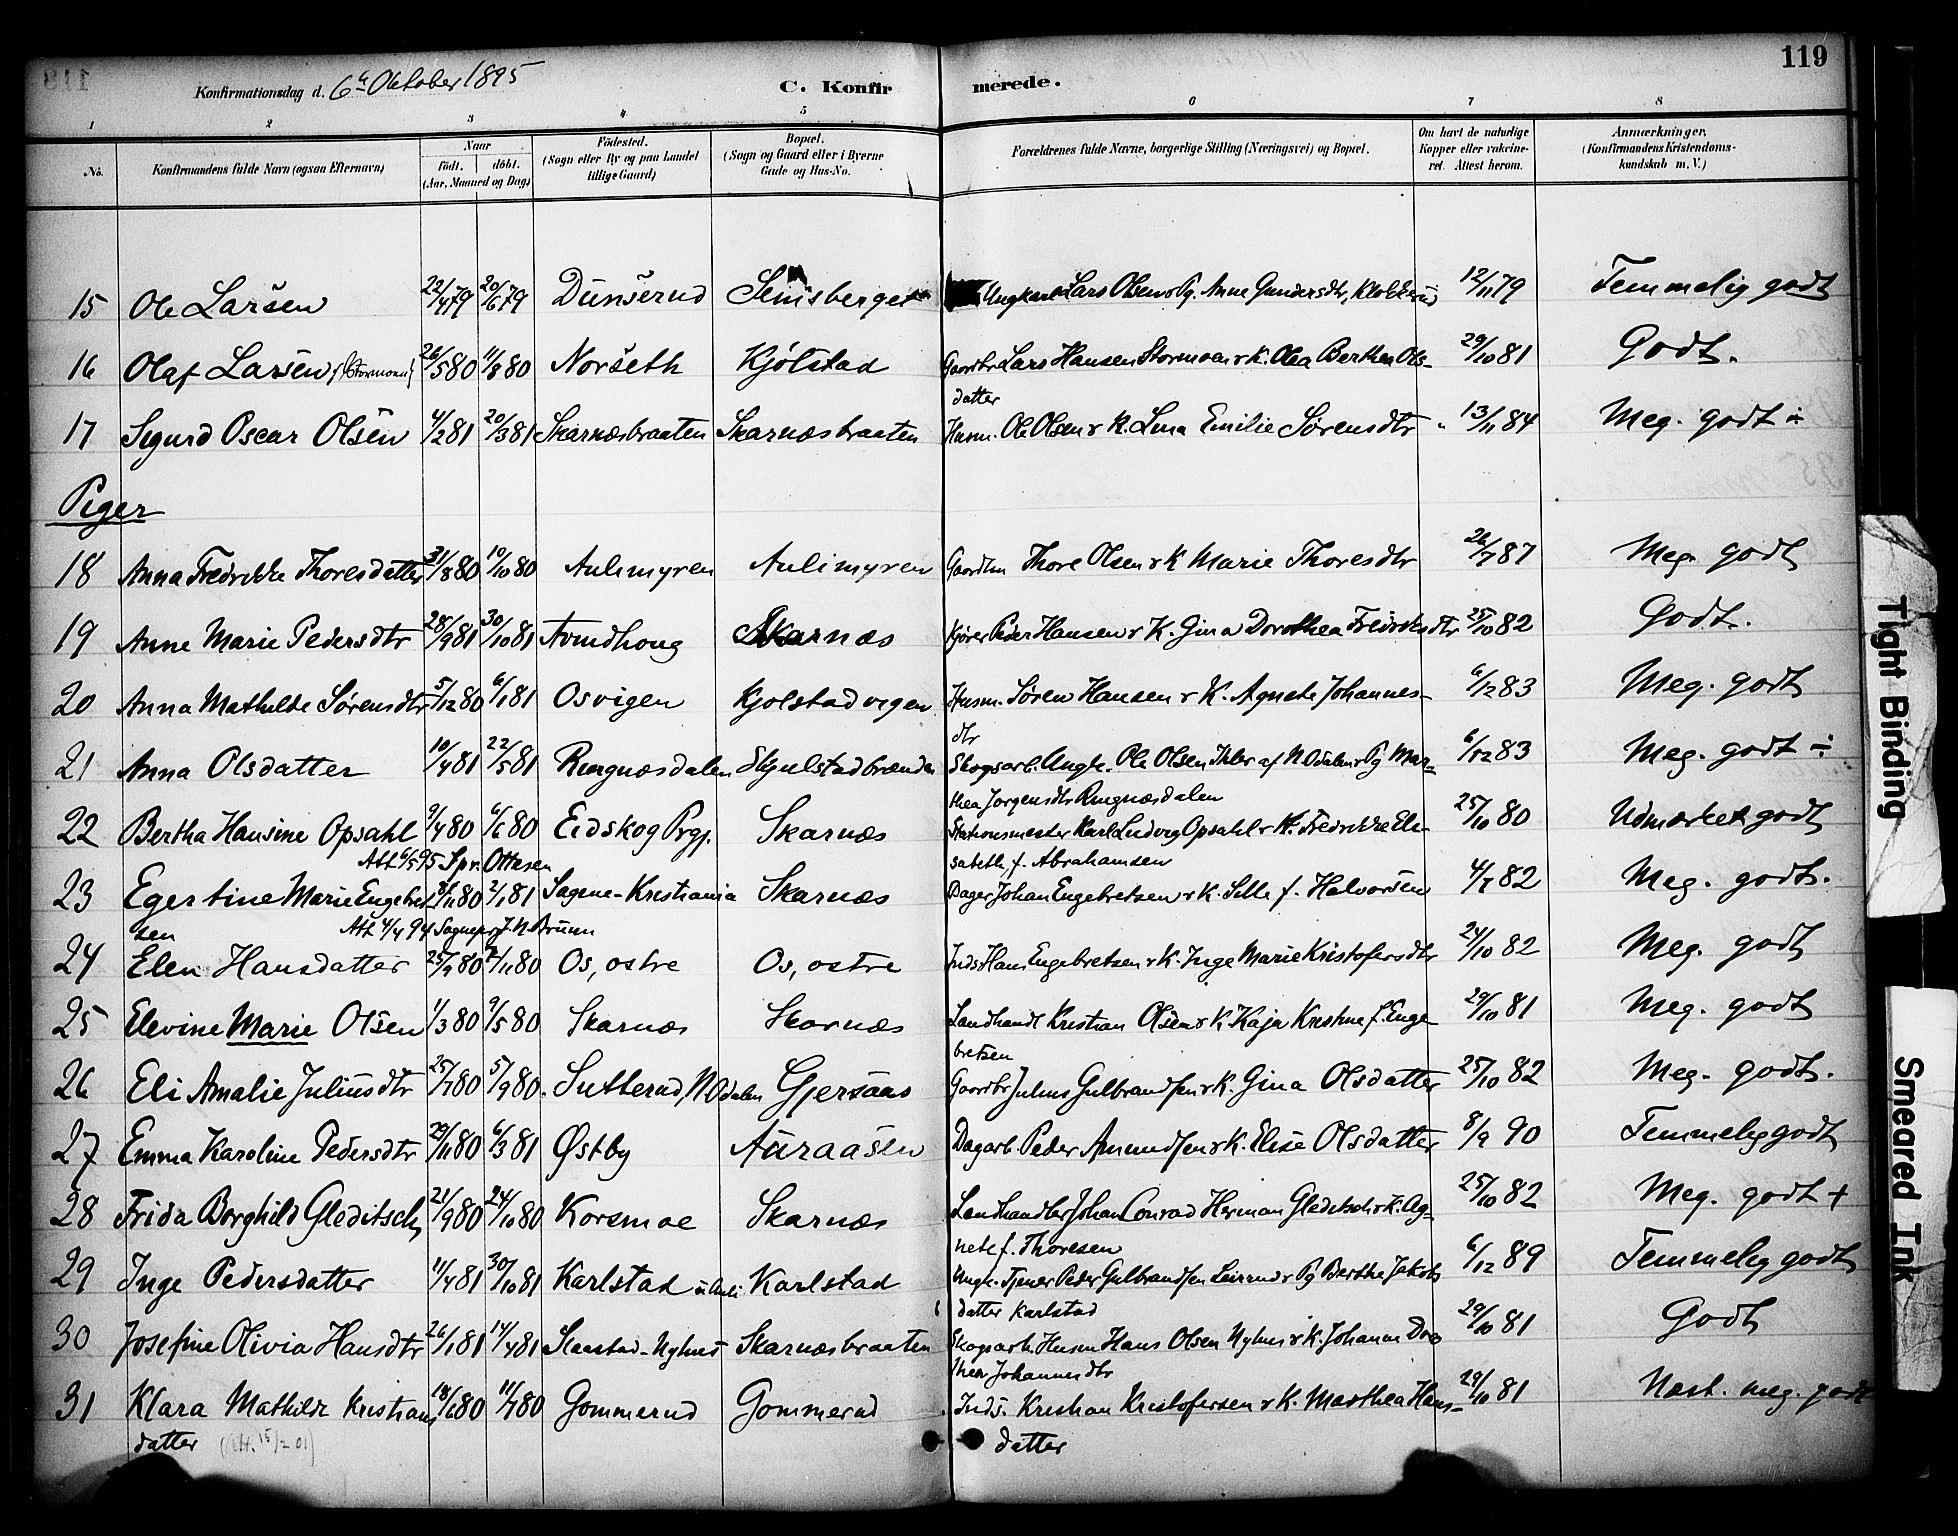 119
Konfirmationsdag d. 6te Oktober 1895 C. Konfirmerede.
1 2 3 4 5 6 7 8
No. Konfirmandens fulde Navn (ogsaa Efternavn) Naar födt. döbt. (Aar, Maaned og Dag) Födested. (Sogn eller By og paa Landet tillige Gaard) Bopæl. (Sogn og Gaard eller i Byerne Gade og Hus-No. Forældrenes fulde Navne, borgerlige Stilling (Næringsvei) og Bopæl. Om havt de naturlige Kopper eller vakcineret. Attest herom. Anmærkninger. (Konfirmandens Kristendomskundskab m. V.)
15 Ole Larsen 22/4 79 20/6 79 Dunserud Ungkarl Lars Olsen & Pg. Anne Gundersdtr, 12/11 79 Temmelig godt
16 Olaf Larsen (Stormoen) 26/5 80 11/8 80 Norseth Kjölstad Gaardbr Lars Hansen Stormoen & K. Olea Berthea Ols-
datter 29/10 81 Godt.
17 Sigurd Oscar Olsen 4/2 81 20/3 81 Skarnæsbraaten Skarnæsbraaten Husm. Ole Olsen & K. Lina Emilie Sørensdtr 13/11 84 Meg. godt ÷
Piger
18 Anna Fredrikke Thoresdatter 31/8 80 10/10 80 Aulimyren Aulimyren Gaardm Thore Olsen & K Marie Thoresdtr 26/7 87 Meg. godt
19 Anne Marie Pedersdtr 28/9 81 30/10 81 Arndhoug Skarnæs Kjører Peder Hansen & K. Gina Dorothea Fredriksdtr 25/10 82 Godt.
20 Anna Mathilde Sørensdtr 5/12 80 6/1 81 Osvigen Kjolstadvigen Husm. Søren Hansen & K. Agnete Johannes-
dtr 6/12 83 Meg. godt
21 Anna Olsdatter 10/4 81 22/5 81 Ringnæsdalen Skogsarb. Ungk. Ole Olsen af N Odalen & Pg Mar-
thea Jørgensdtr Ringnæsdalen 6/12 83 Meg. godt ÷
22 Bertha Hansine Opsahl 9/4 80 6/6 80 Eidskog Prgj. Skarnæs Stationsmester Karl Ludvig Opsahl & K. Fredrikke Eli-
sabeth f. Abrahamsen 25/10 80 Udmærket godt
Att 6/5 95 Spr. Ottesen
23 Egertine Marie Engebret-
sen 2/1 81 Sagene-Kristiania Skarnæs Dager Johan Engebretsen & K. Sille f. Halvorsen 82 Meg. godt.
Att 4/4 94
24 Elen Hansdatter 25/9 80 Os, østre Os, østre Inds Hans Engebretsen & K. Inge Marie Kristofersdtr 24/10 82 Meg. godt
25 Elevine Marie Olsen 1/3 80 9/5 80 Skarnæs Skarnæs Landhandl Kristian Olsen & K Kaja Kristine f. Enge-
bretsen 29/10 81 Meg. godt
26 Eli Amalie Juliusdtr 25/7 80 5/9 80. Sutterud, N Odalen Gjersaas Gaardbr Julius Gulbrandsen & K. Gina Olsdatter 25/10 82 Meg. godt.
27 Emma Karoline Pedersdtr 29/11 80 6/3 81 Østby Auraasen Dagarb. Peder Amundsen & K. Elise Olsdatter 8/9 90 Temmelig godt
28 Frida Borghild Gleditsch 21/9 80 24/10 80 Korsmoe Skarnæs Landhandler Johan Conrad Herman Gleditsch & K. Ag-
nete f. Thoresen 25/10 82 Meg. godt +
29 Inge Pedersdatter 11/4 81 30/10 81 Karlstad u Auli Karlstad Ungk. Tjener Peder Gulbrandsen Leirud & Pg Berthe Jakobs
datter Karlstad 6/12 89 Temmelig godt
30 Josefine Olivia Hansdtr 26/1 81 14/4 81 Slaastad-Nyhus Skarnæsbraaten Skogsarb. Husm Hans Olsen Nyhus & K. Johanne Doro
thea Johannesdtr 29/10 81 Godt
31 Klara Mathilde Kristians
datter (Att. 15/2 01) 18/6 80 11/7 80 Gommerud Gommerud Inds. Kristian Kristofersen & K. Marthea Hans-
datter 29/10 81 Næst. meg. godt
Tight Binding
Smeared Ink